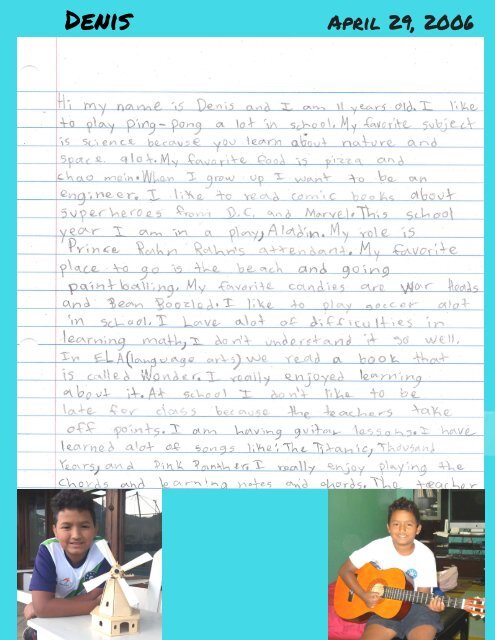 Denis
April 29, 2006
Hi my name is Denis and I am 11 years old. I like
to play ping-pong a lot in school. My favorite subject
is science because you learn about nature and
space alot. My favorite food is pizza and
chao mein. When I grow up I want to be an
engineer. I like to read comic books about
superheroes from D.C. and Marvel. This school
year I am in a play, Aladin. My role is
Prince Rahn Rahn's attendant. My favorite
place to go is the beach and going
paintballing. My favorite candies are War Heads
and Bean Boozled. I like to play soccer alot
in school. I have alot of difficulties in
learning math, I don't understand it so well.
In ELA (language arts) we read a book that
is called Wonder. I really enjoyed learning
about it. At school I don't like to be
late for class because the teachers take
off points. I am having guitar lessons. I have
learned alot of songs like: The Titanic, Thousand
Years, and Pink Panther. I really enjoy playing the
chords and learning notes and chords. The teacher